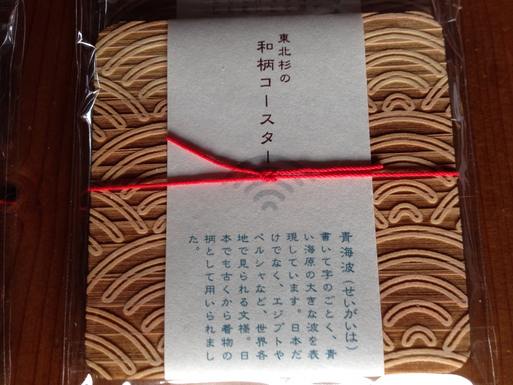 東北杉の
和柄コースター
青海波(せいがいは)
書いて字のごとく、青
い海原の大きな波を表
現しています。日本だ
けでなく、エジプトや
ペルシャなど、世界各
地で見られる文様。日
本でも古くから着物の
柄として用いられまし
た。